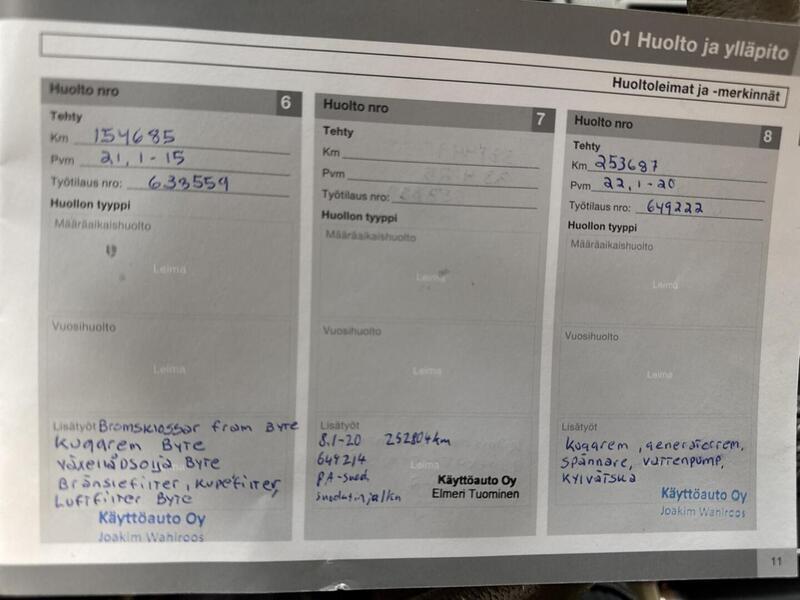 01 Huolto ja ylläpito
Huoltoleimat ja -merkinnät
Huolto nro 6
Tehty
Km 154685
Pvm 21.1-15
Työtilaus nro: 633559
Huollon tyyppi
Määräaikaishuolto
Leima
Vuosihuolto
Leima
Lisätyöt Bromsklossar fram Byte
Kuggrem Byte
växellådsolja Byte
Bränslefilter, Kupefilter,
Luftfilter Byte
Käyttöauto Oy
Joakim Wahlroos
Huolto nro 7
Tehty
Km
Pvm
Työtilaus nro:
Huollon tyyppi
Määräaikaishuolto
Leima
Vuosihuolto
Leima
Lisätyöt
8.1-20 252804km
649214
Leima
Käyttöauto Oy
Elmeri Tuominen
Huolto nro 8
Tehty
Km 253687
Pvm 22.1-20
Työtilaus nro: 649222
Huollon tyyppi
Määräaikaishuolto
Leima
Vuosihuolto
Leima
Lisätyöt
Kuggrem, generatorrem,
spännare, vattenpump,
Kylvätska
Käyttöauto Oy
Joakim Wahlroos
11